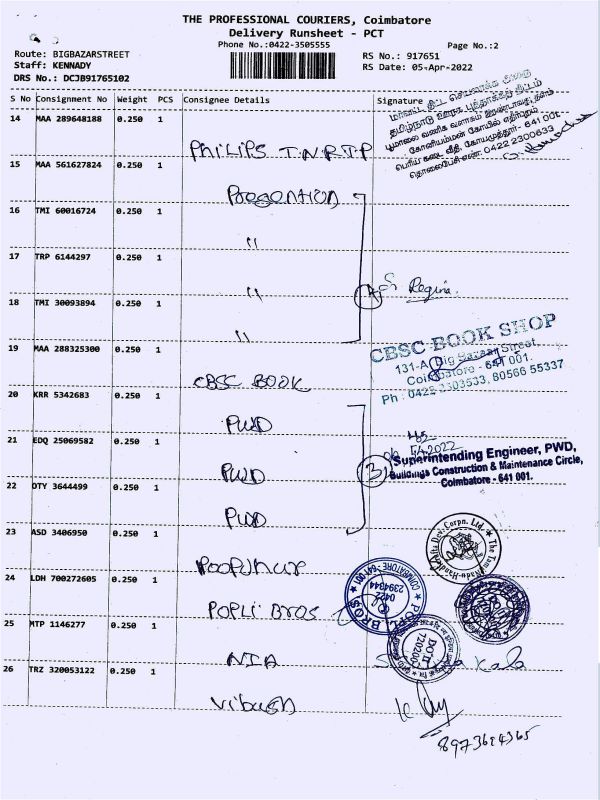 THE PROFESSIONAL COURIERS, Coimbatore
Delivery Runsheet - PCT
Phone No.:0422-3505555
Page No.:2
Route: BIGBAZARSTREET
Staff: KENNADY
DRS No.: DCJB91765102
RS No.: 917651
RS Date: 05-Apr-2022
S No Consignment No Weight PCS Consignee Details Signature
14 MAA 289648188 0.250 1
PHILIPS T.N.R.T.P
பூமாலை வணிக வளாகம் இரண்டாவது தளம்
கோனியம்மன் கோயில் எதிர்புறம்
பெரிய கடை வீதி, கோயமுத்தூர் - 641 001.
தொலைபேசி எண்: 0422 2300633
15 MAA 561627824 0.250 1
16 TMI 60016724 0.250 1
"
17 TRP 6144297 0.250 1
"
Regina.
18 TMI 30093894 0.250 1
"
19 MAA 288325300 0.250 1
CBSC BOOK
CBSC BOOK SHOP
131-A, Big Bazaar Street,
Coimbatore - 641 001.
Ph : 0422 2303533, 80566 55337
20 KRR 5342683 0.250 1
PWD
21 EDQ 25069582 0.250 1
PWD
3
Superintending Engineer, PWD,
Buildings Construction & Maintenance Circle,
Coimbatore - 641 001.
22 DTY 3644499 0.250 1
PWD
23 ASD 3406950 0.250 1
Poopuhar
24 LDH 700272605 0.250 1
POPLI BROS
POPLI BROS
COIMBATORE-641 001
0422
2394344
25 MTP 1146277 0.250 1
NIA
DO II
720200
26 TRZ 320053122 0.250 1
Vibush
8973694365